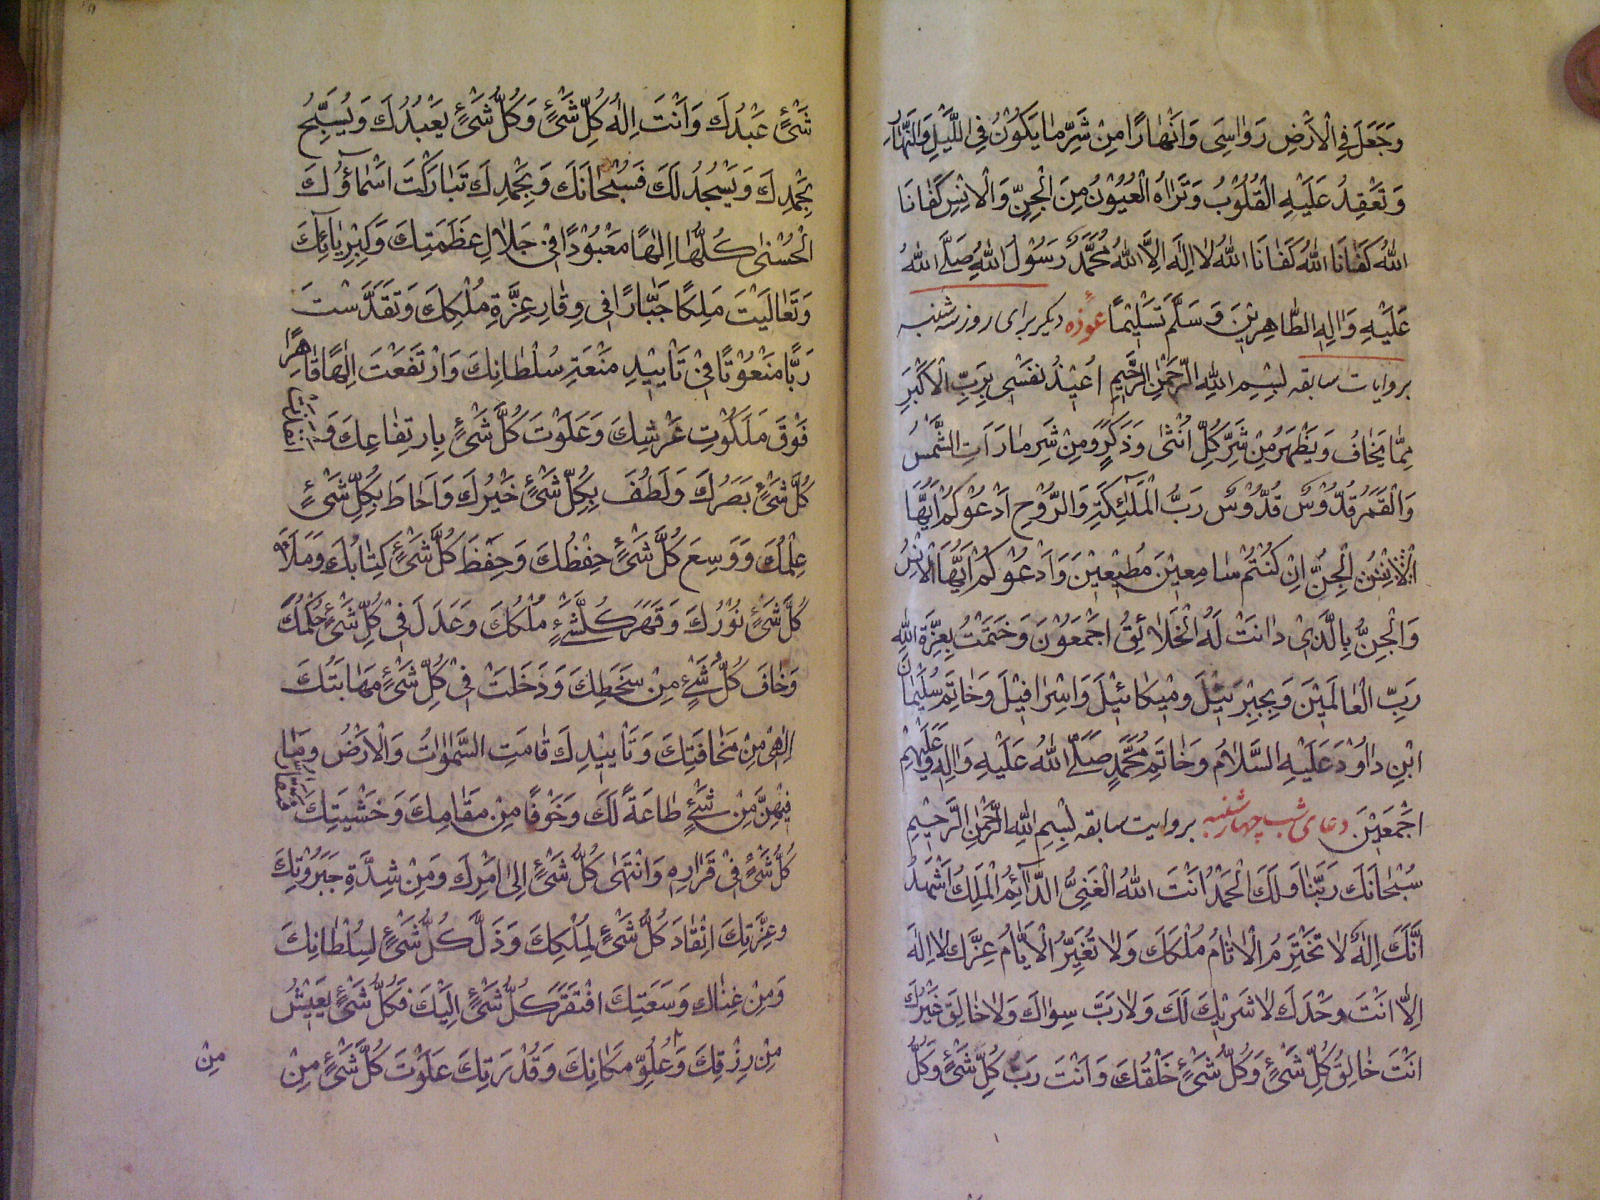 وَجَعَلَ فِي الْاَرْضِ رَوَاسِيَ وَاَنْهَارًا مِنْ شَرِّ مَا يَكُوْنُ فِي اللَّيْلِ وَالنَّهَارِ
وَتَعْقِدُ عَلَيْهِ الْقُلُوْبُ وَتَرَاهُ الْعُيُوْنُ مِنَ الْجِنِّ وَالْاِنْسِ كَفَانَا
اللهُ كَفَانَا اللهُ كَفَانَا اللهُ لَا اِلٰهَ اِلَّا اللهُ مُحَمَّدٌ رَسُوْلُ اللهِ صَلَّى اللهُ
عَلَيْهِ وَاٰلِهِ الطَّاهِرِيْنَ وَسَلَّمَ تَسْلِيْمًا عوذه ديكر براى روز سه شنبه
بروايات سابقه بِسْمِ اللهِ الرَّحْمٰنِ الرَّحِيْمِ اُعِيْذُ نَفْسِيْ بِرَبِّيَ الْاَكْبَرِ
مِمَّا يَخَافُ وَيَظْهَرُ مِنْ شَرِّ كُلِّ اُنْثٰى وَذَكَرٍ وَمِنْ شَرِّ مَا رَاَتِ الشَّمْسُ
وَالْقَمَرُ قُدُّوْسٌ قُدُّوْسٌ رَبُّ الْمَلٰٓئِكَةِ وَالرُّوْحِ اَدْعُوْكُمْ اَيُّهَا
الْجِنُّ اِنْ كُنْتُمْ سَامِعِيْنَ مُطِيْعِيْنَ وَاَدْعُوْكُمْ اَيُّهَا الْاِنْسُ
وَالْجِنُّ بِالَّذِيْ دَانَتْ لَهُ الْخَلَائِقُ اَجْمَعُوْنَ وَخَتَمْتُ بِعِزَّةِ اللهِ
رَبِّ الْعَالَمِيْنَ وَبِجِبْرَئِيْلَ وَمِيْكَائِيْلَ وَاِسْرَافِيْلَ وَخَاتَمِ سُلَيْمَانَ
ابْنِ دَاوُدَ عَلَيْهِ السَّلَامُ وَخَاتَمِ مُحَمَّدٍ صَلَّى اللهُ عَلَيْهِ وَاٰلِهِ وَعَلَيْهِمْ
اَجْمَعِيْنَ دعاى شب چهارشنبه بروايت سابقه بِسْمِ اللهِ الرَّحْمٰنِ الرَّحِيْمِ
سُبْحَانَكَ رَبَّنَا وَلَكَ الْحَمْدُ اَنْتَ اللهُ الْغَنِيُّ الدَّائِمُ الْمَلِكُ اَشْهَدُ
اَنَّكَ اِلٰهٌ لَا تَخْتَرِمُ الْاَثَامُ مُلْكَكَ وَلَا تُغَيِّرُ الْاَيَّامُ عِزَّكَ لَا اِلٰهَ
اِلَّا اَنْتَ وَحْدَكَ لَا شَرِيْكَ لَكَ وَلَا رَبَّ سِوَاكَ وَلَا خَالِقَ غَيْرُكَ
اَنْتَ خَالِقُ كُلِّ شَيْءٍ وَكُلُّ شَيْءٍ خَلْقُكَ وَاَنْتَ رَبُّ كُلِّ شَيْءٍ وَكُلُّ
شَيْءٍ عَبْدُكَ وَاَنْتَ اِلٰهُ كُلِّ شَيْءٍ وَكُلُّ شَيْءٍ يَعْبُدُكَ وَيُسَبِّحُ
بِحَمْدِكَ وَيَسْجُدُ لَكَ فَسُبْحَانَكَ وَبِحَمْدِكَ تَبَارَكْتَ اَسْمَاؤُكَ
الْحُسْنٰى كُلُّهَا اِلٰهًا مَعْبُوْدًا فِيْ جَلَالِ عَظَمَتِكَ وَكِبْرِيَائِكَ
وَتَعَالَيْتَ مَلِكًا جَبَّارًا فِي وِقَارِ عِزَّةِ مُلْكِكَ وَتَقَدَّسْتَ
رَبًّا مَنْعُوْتًا فِيْ تَأْيِيْدِ مَنْعَةِ سُلْطَانِكَ وَارْتَفَعْتَ اِلٰهًا قَاهِرًا
فَوْقَ مَلَكُوْتِ عَرْشِكَ وَعَلَوْتَ كُلَّ شَيْءٍ بِارْتِفَاعِكَ وَ
كُلَّ شَيْءٍ بَصَرُكَ وَلَطُفَ بِكُلِّ شَيْءٍ خَبْرُكَ وَاَحَاطَ بِكُلِّ شَيْءٍ
عِلْمُكَ وَوَسِعَ كُلَّ شَيْءٍ حِفْظُكَ وَحَفِظَ كُلَّ شَيْءٍ كِتَابُكَ وَمَلَأَ
كُلَّ شَيْءٍ نُوْرُكَ وَقَهَرَ كُلَّ شَيْءٍ مُلْكُكَ وَعَدَلَ فِيْ كُلِّ شَيْءٍ حُكْمُكَ
وَخَافَ كُلُّ شَيْءٍ مِنْ سَخَطِكَ وَدَخَلَتْ فِيْ كُلِّ شَيْءٍ مَهَابَتُكَ
اِلٰهِيْ مِنْ مَخَافَتِكَ وَتَأْيِيْدِكَ قَامَتِ السَّمٰوَاتُ وَالْاَرْضُ وَمَا
فِيْهِنَّ مِنْ شَيْءٍ طَاعَةً لَكَ وَخَوْفًا مِنْ مَقَامِكَ وَخَشْيَتِكَ
كُلُّ شَيْءٍ فِيْ قَرَارِهِ وَانْتَهٰى كُلُّ شَيْءٍ اِلٰى اَمْرِكَ وَمِنْ شِدَّةِ جَبَرُوْتِكَ
وَعِزَّتِكَ انْقَادَ كُلُّ شَيْءٍ لِمُلْكِكَ وَذَلَّ كُلُّ شَيْءٍ لِسُلْطَانِكَ
وَمِنْ غِنَاكَ وَسَعَتِكَ افْتَقَرَ كُلُّ شَيْءٍ اِلَيْكَ فَكُلُّ شَيْءٍ يَعِيْشُ
مِنْ رِزْقِكَ وَعُلُوِّ مَكَانِكَ وَقُدْرَتِكَ عَلَوْتَ كُلَّ شَيْءٍ مِنْ
مِنْ